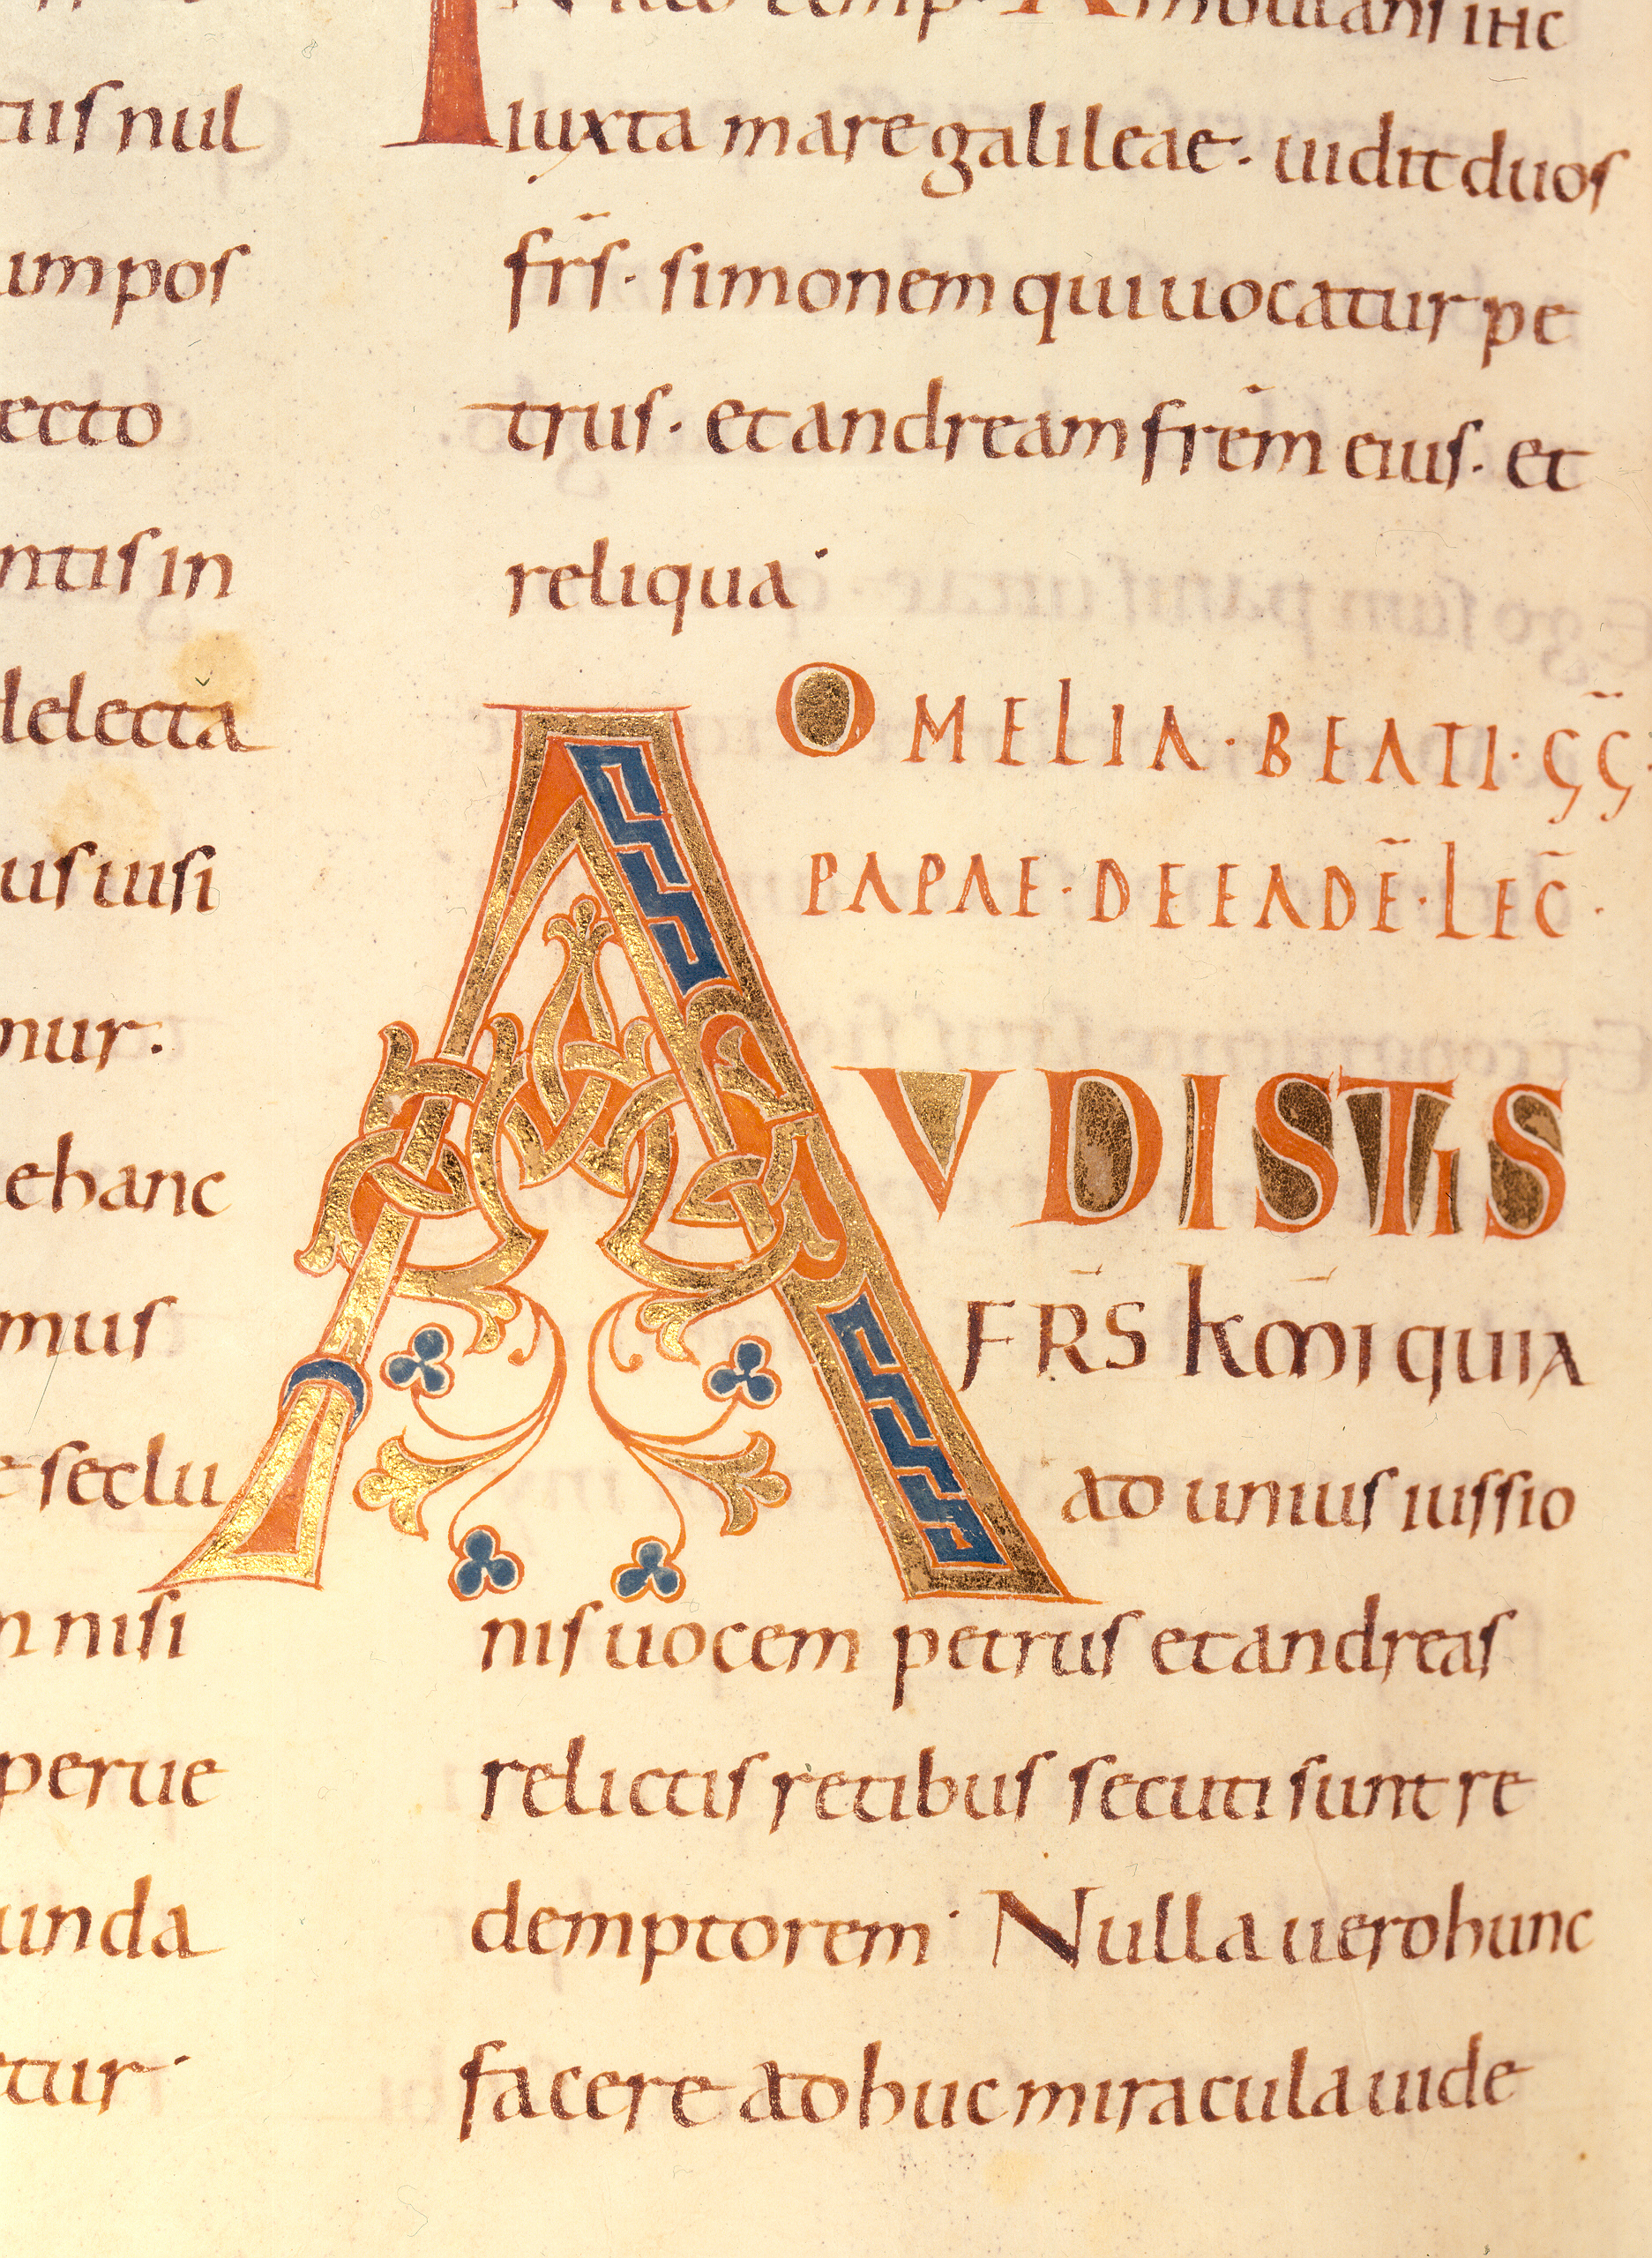 tus nul
um pos
ecto
ntis in
delecta
us iusi
mur.
e hanc
mus
e seclu
n nisi
perue
unda
tur
In illo temp. Ambulans ihc
iuxta mare galileae. uidit duos
fr̄s. simonem qui uocatur pe
trus. et andream fr̄em eius. et
reliqua.
OMELIA. BEATI. GḠ.
PAPAE. DE EADĒ. LEC̄.
AVDISTIS
FR̄S km̄i quia
ad unius iussio
nis uocem petrus et andreas
relictis retibus secuti sunt re
demptorem. Nulla uero hunc
facere adhuc miracula uide